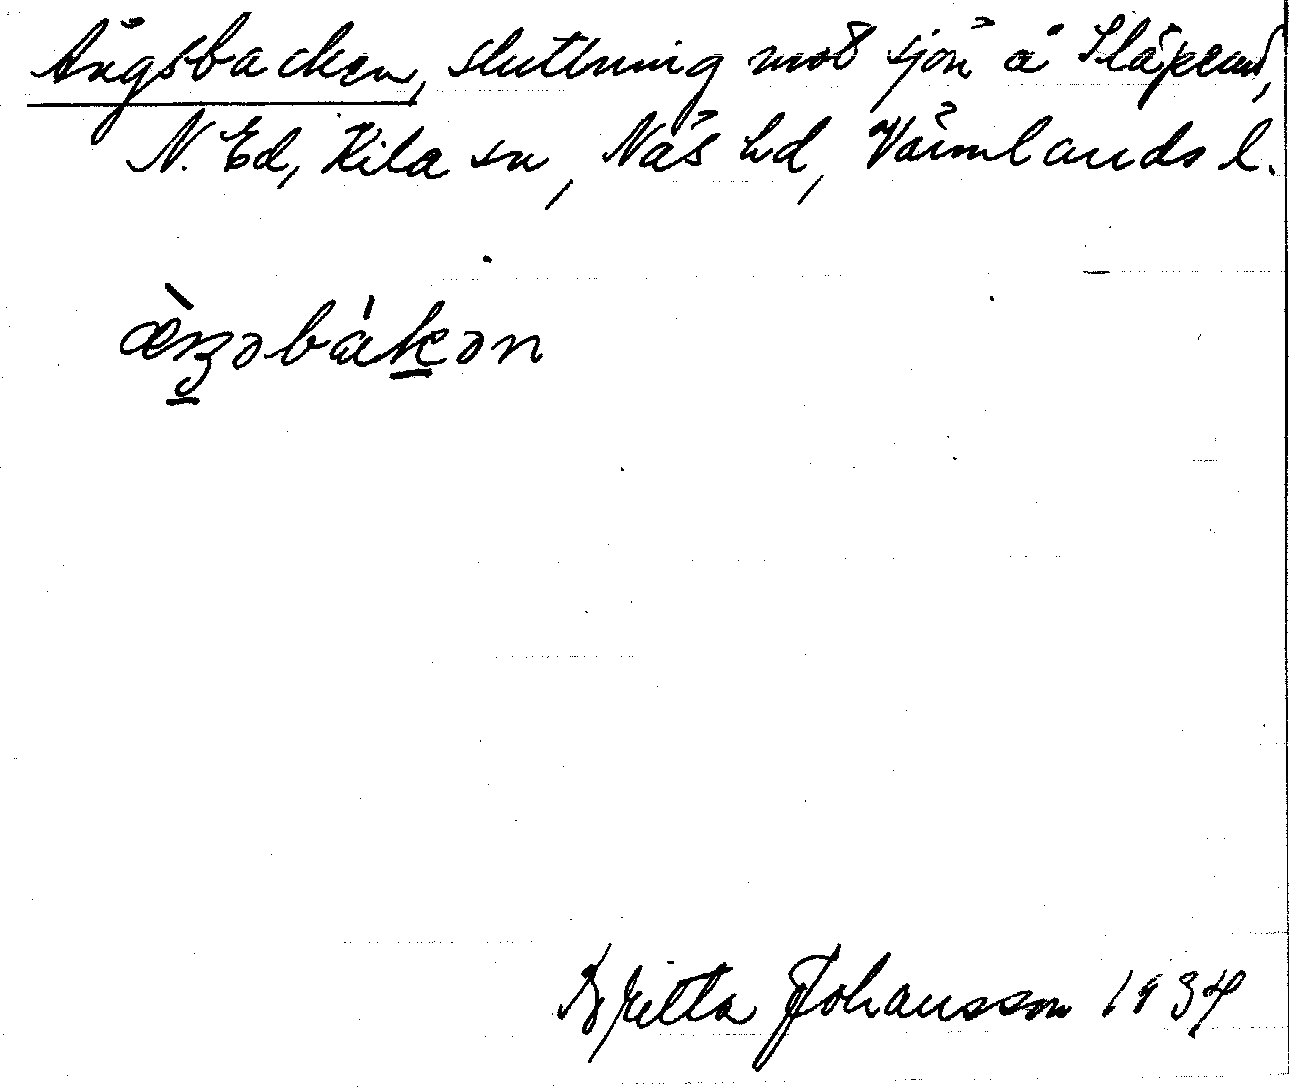 Ängsbacken, sluttning mot sjön å Släpsund,
N. Ed, Kila sn, Näs hd, Värmlands l.
æ̀nʒəbákən
Britta Johansson 1934